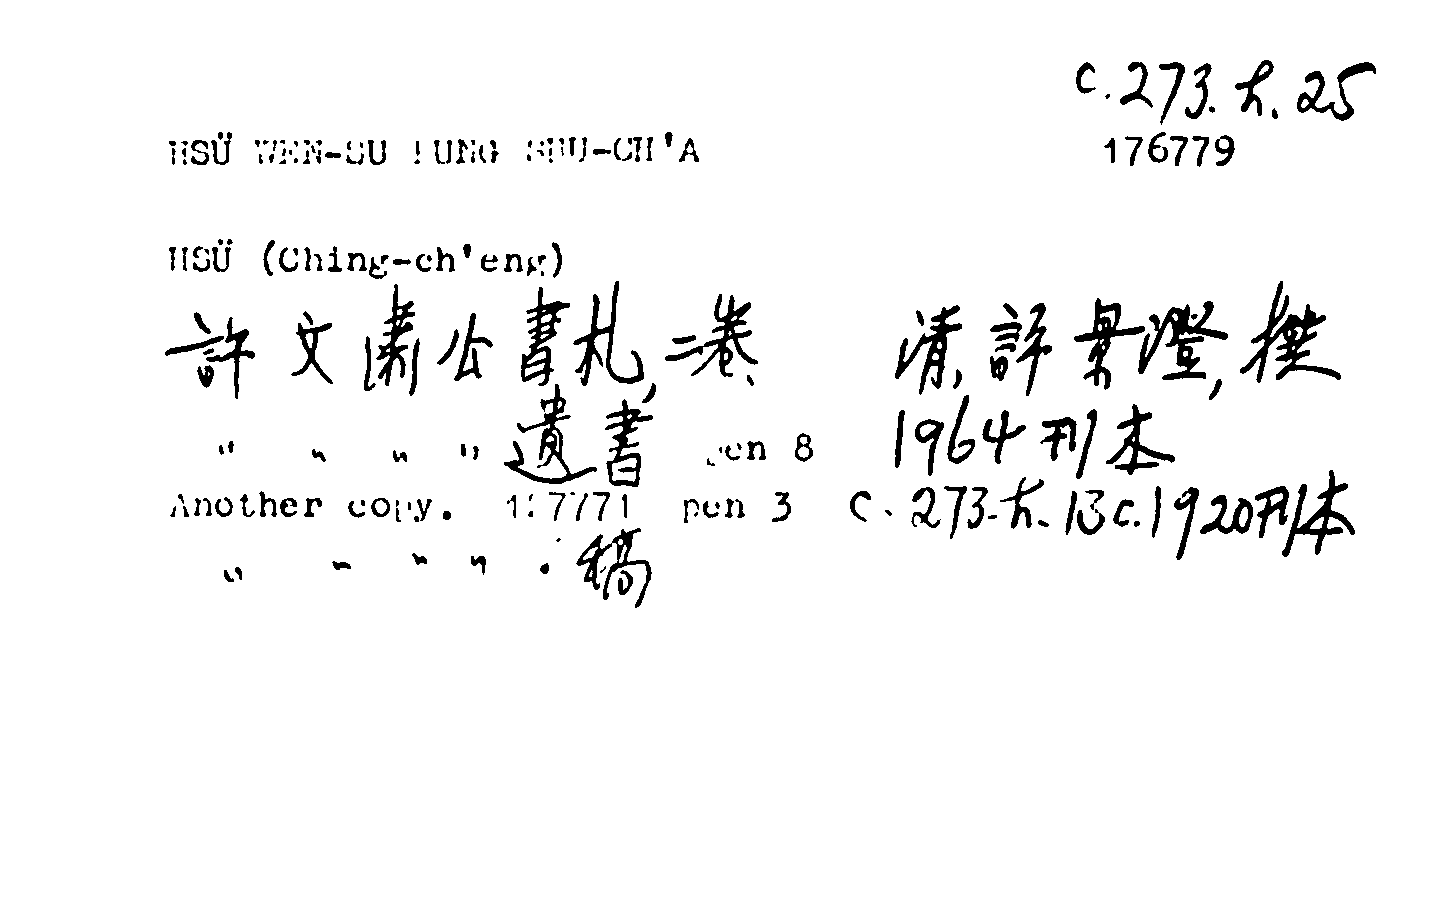 C.273.h.25
HSÜ WEN-SU KUNG SHU-CH'A 176779
HSÜ (Ching-ch'eng)
許文肅公書札,二卷、 清,許景澄,撰
" " " " 遺書 pen 8 1964刊本
Another copy. 177771 pen 3 C.273.h.13c.1 920刊本
" " " " . 稿